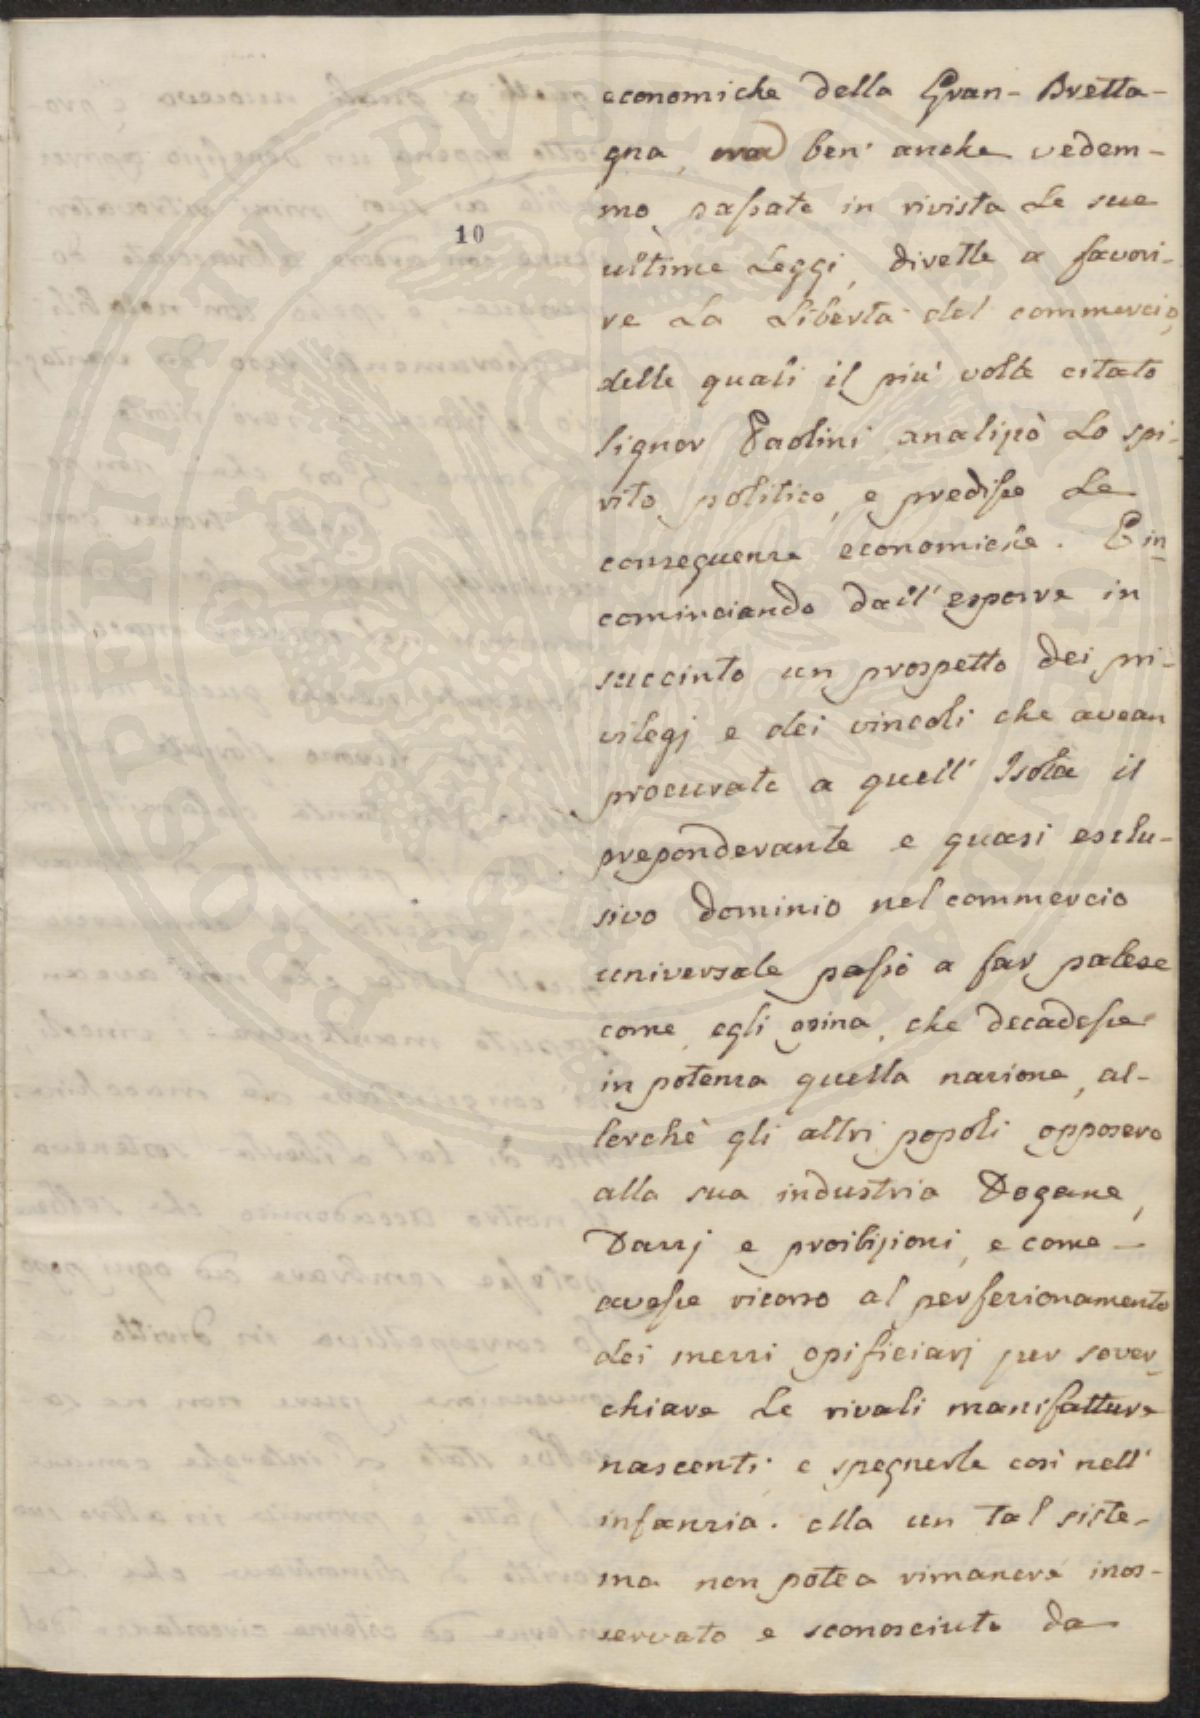 10
economiche della Gran-Bretta-
gna, ma ben' anche vedem-
mo passate in rivista le sue
ultime Leggi, dirette a favori-
re La Libertà del commercio,
delle quali il più volte citato
Signor Paolini analizzò Lo spi-
rito politico, e predisse Le
conseguenze economiche. E in-
cominciando dall' esporre in
succinto un prospetto dei pri-
vilegj e dei vincoli che avean
procurato a quell' Isola il
preponderante e quasi esclu-
sivo dominio nel commercio
universale passò a far palese
come, egli opina, che decadesse
in potenza quella nazione, al-
lorchè gli altri popoli opposero
alla sua industria Dogane,
Dazzj e proibizioni, e come
avesse ricorso al perfezionamento
dei mezzi opificiarj per sover-
chiare Le rivali manifatture
nascenti, e spegnerle così nell'
infanzia. Ma un tal siste-
ma non potea rimanere inos-
servato e sconosciuto da
PROSPERITATI PUBLICAE